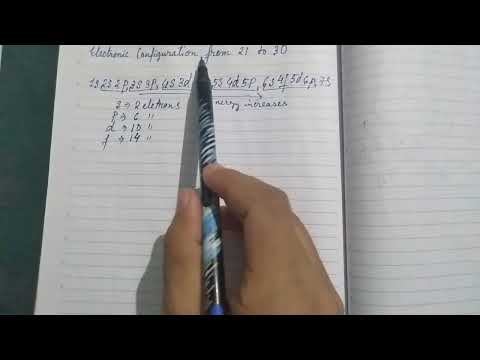 Electronic Configuration from 21 to 30
1s 2s 2p, 3s 3p, 4s 3d 5s 4d 5p, 6s 4f 5d 6p, 7s
s → 2 eletrons energy increases
p → 6 "
d → 10 "
f → 14 "